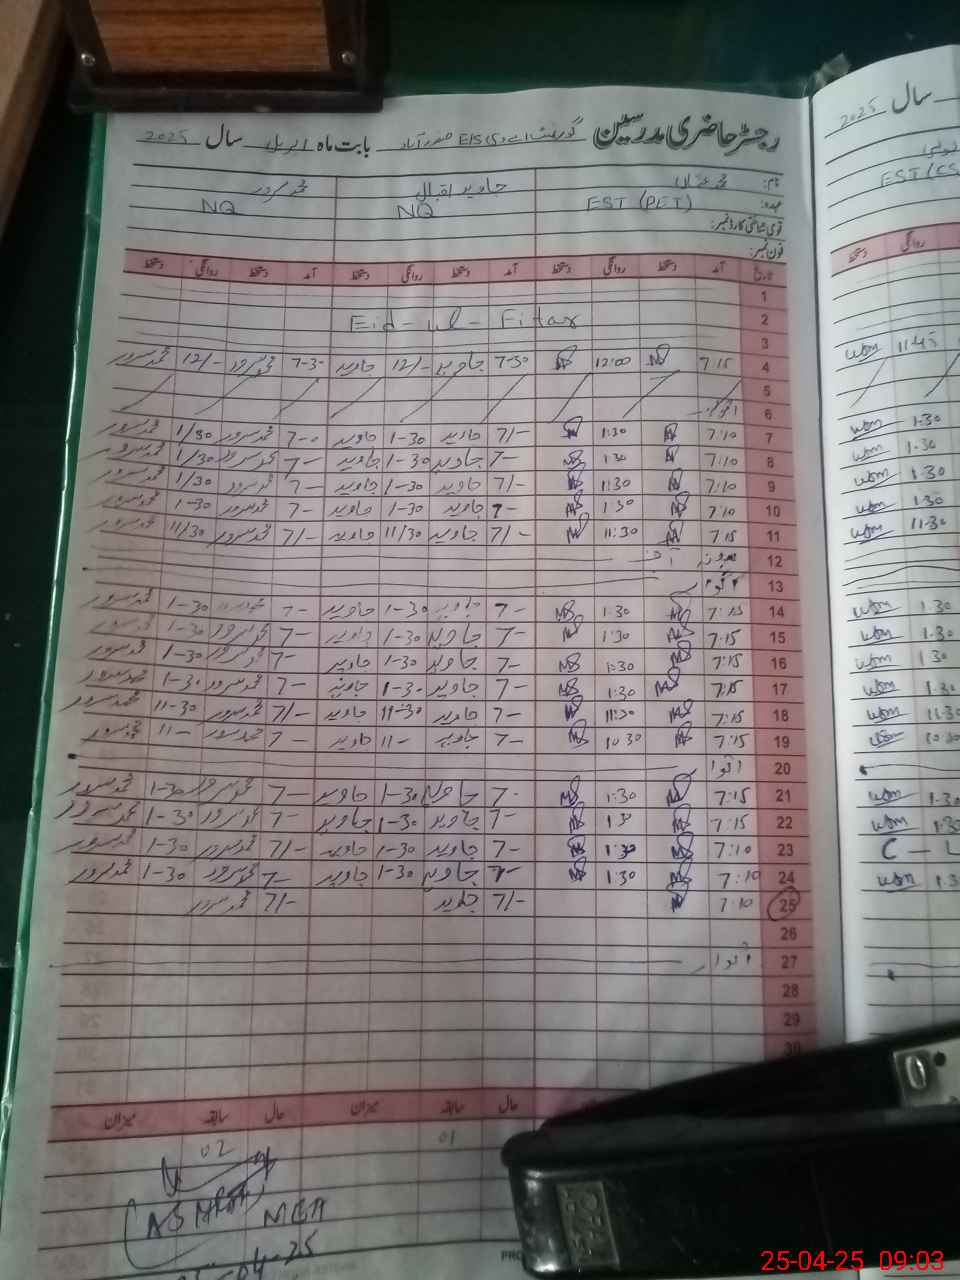 رجسٹر حاضری مدرسین گورنمنٹ اے ڈی EIS حیدر آباد بابت ماہ اپریل سال 2025
نام: جاوید اقبال محمد سرور
عہدہ: EST (PET) NQ NQ
قومی شناختی کارڈ نمبر:
فون نمبر:
تاریخ آمد دستخط روانگی دستخط آمد دستخط روانگی دستخط آمد دستخط روانگی دستخط
1
2 Eid-ul-Fitar
3
4 7:15 12:00 7-30 جاوید 12/- جاوید 7-30 محمد سرور 12/- محمد سرور
5
6 اتوار
7 7:10 1:30 7/- جاوید 1-30 جاوید 7-0 محمد سرور 1/30 محمد سرور
8 7:10 1:30 7- جاوید 1-30 جاوید 7- محمد سرور 1/30 محمد سرور
9 7:10 11:30 7/- جاوید 1-30 جاوید 7- محمد سرور 1/30 محمد سرور
10 7:10 1:30 7- جاوید 1-30 جاوید 7- محمد سرور 1-30 محمد سرور
11 7:15 11:30 7/- جاوید 11/30 جاوید 7/- محمد سرور 11/30 محمد سرور
12
13 اتوار
14 7:15 1:30 7- جاوید 1-30 جاوید 7- محمد سرور 1-30 محمد سرور
15 7:15 1:30 7- جاوید 1-30 جاوید 7- محمد سرور 1-30 محمد سرور
16 7:15 1:30 7- جاوید 1-30 جاوید 7- محمد سرور 1-30 محمد سرور
17 7:15 1:30 7- جاوید 1-30 جاوید 7- محمد سرور 1-30 محمد سرور
18 7:15 11:30 7- جاوید 11-30 جاوید 7/- محمد سرور 11-30 محمد سرور
19 7:15 10:30 7- جاوید 11- جاوید 7- محمد سرور 11- محمد سرور
20 اتوار
21 7:15 1:30 7- جاوید 1-30 جاوید 7- محمد سرور 1-30 محمد سرور
22 7:15 1:30 7- جاوید 1-30 جاوید 7- محمد سرور 1-30 محمد سرور
23 7:10 1:30 7- جاوید 1-30 جاوید 7/- محمد سرور 1-30 محمد سرور
24 7:10 1:30 7- جاوید 1-30 جاوید 7- محمد سرور 1-30 محمد سرور
25 7:10 7/- جاوید 7/- محمد سرور
26
27 اتوار
28
29
30
حال سابقہ میزان حال سابقہ میزان
01 02
MEA
سال 2025
EST (CS
روانگی دستخط
11:45
1:30
1:30
1:30
1:30
11:30
1:30
1:30
1:30
1:30
11:30
10:30
1:30
1:30
C - L
1:3
PRO
25-04-25 09:03